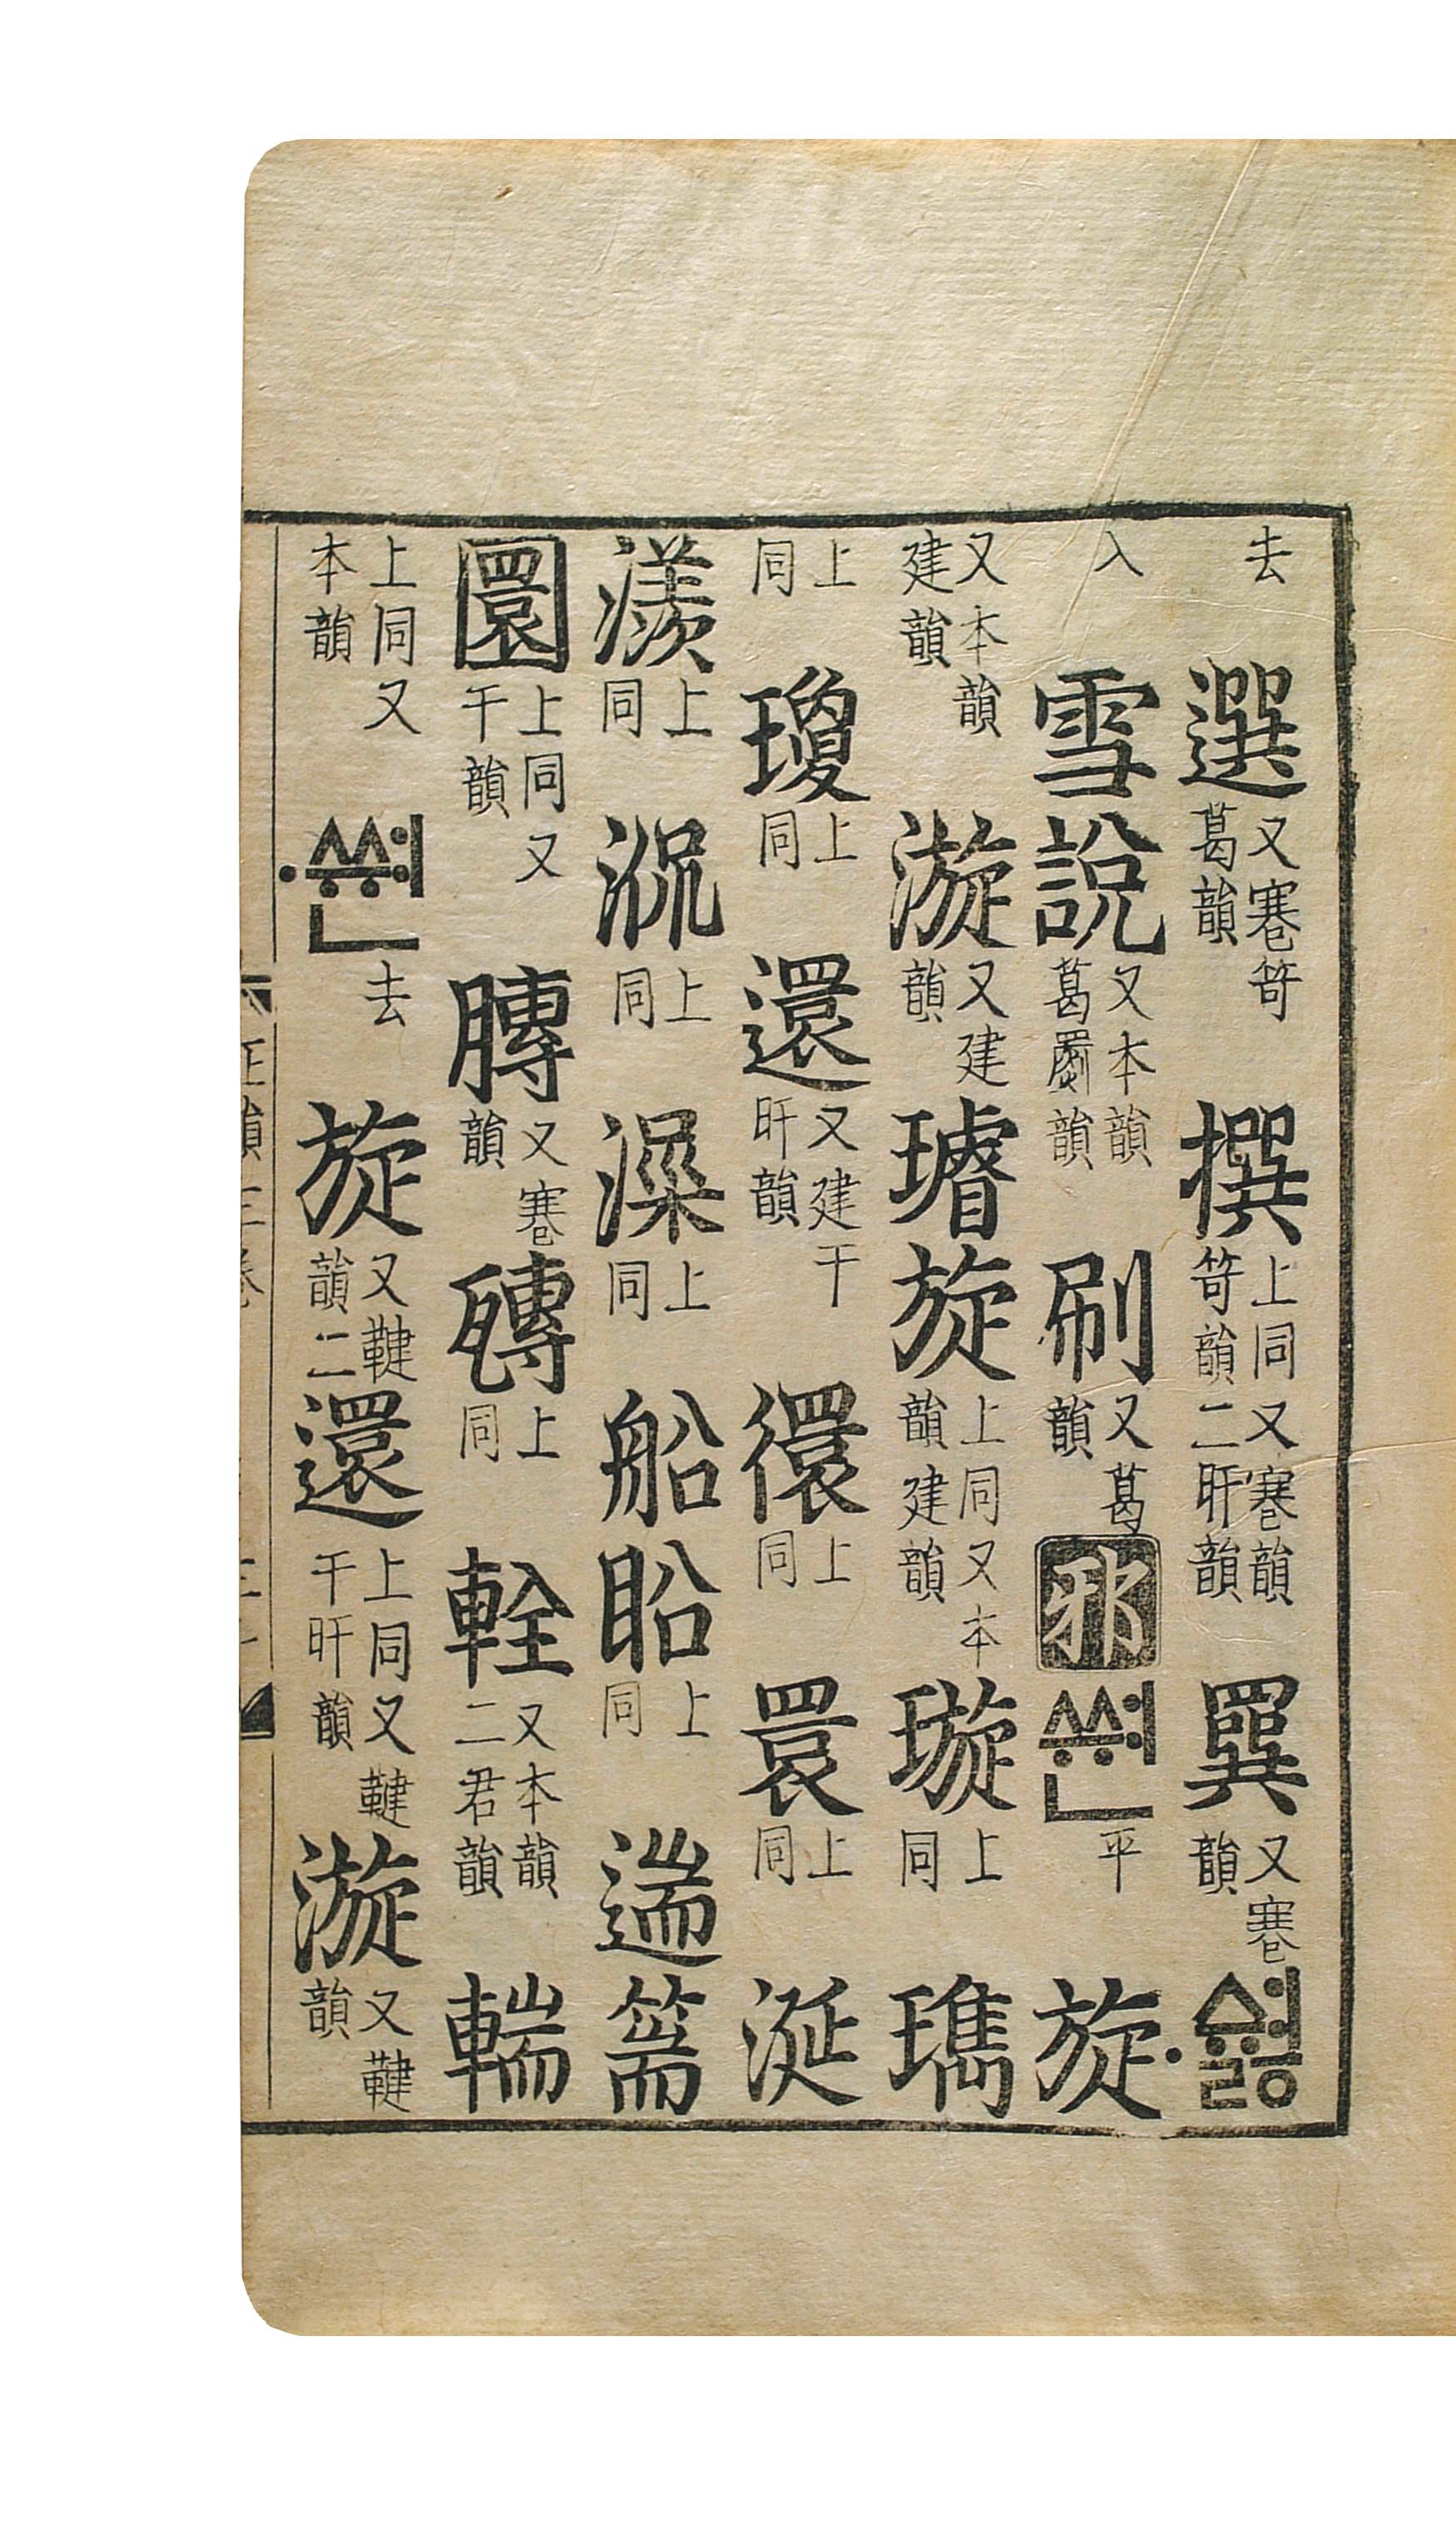 去選又寋笴葛韻撰上同又寋韻笴韻二旰韻巽又寋韻〮ᄉᆑᇙ
入雪說又本韻葛罽韻刷又葛韻邪ᄊᆑᆫ平旋
又本韻建韻漩又建韻璿旋上同又本韻建韻璇上同
上同瓊上同還又建干旰韻上同瞏上同涎
上同上同上同船上同遄篅
圜上同又干韻膞又寋韻上同輇又本韻二君韻輲
上同又本韻〮ᄊᆑᆫ去旋又鞬韻二還上同又鞬干旰韻漩又鞬韻